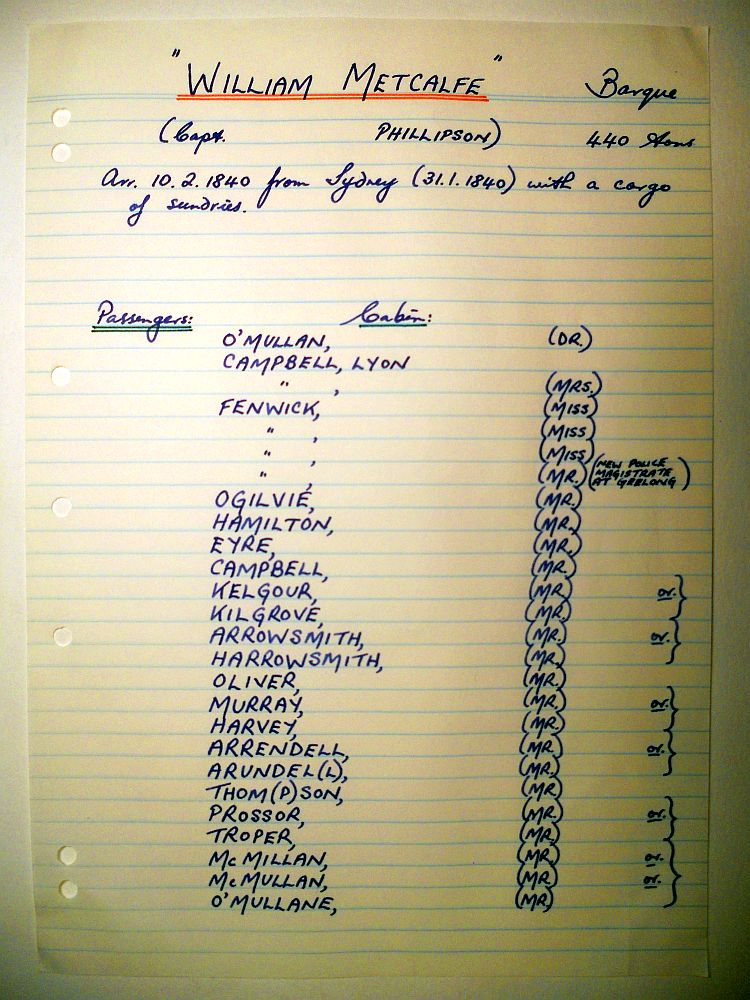 "WILLIAM METCALFE" Barque
(Capt. PHILLIPSON) 440 tons
Arr. 10.2.1840 from Sydney (31.1.1840) with a cargo
of sundries.
Passengers: Cabin:
O'MULLAN, (DR.)
CAMPBELL, LYON
" , (MRS.)
FENWICK, (MISS)
" , (MISS)
" , (MISS)
" , (MR.) (NEW POLICE
MAGISTRATE
AT GEELONG)
OGILVIE, (MR.)
HAMILTON, (MR.)
EYRE, (MR.)
CAMPBELL, (MR.)
KELGOUR, (MR.) or. }
KILGROVE, (MR.)
ARROWSMITH, (MR.) or. }
HARROWSMITH, (MR.)
OLIVER, (MR.)
MURRAY, (MR.) or. }
HARVEY, (MR.)
ARRENDELL, (MR.) or. }
ARUNDEL(L), (MR.)
THOM(P)SON, (MR.)
PROSSOR, (MR.) or. }
TROPER, (MR.)
McMILLAN, (MR.) or. }
McMULLAN, (MR.) or.
O'MULLANE, (MR.)